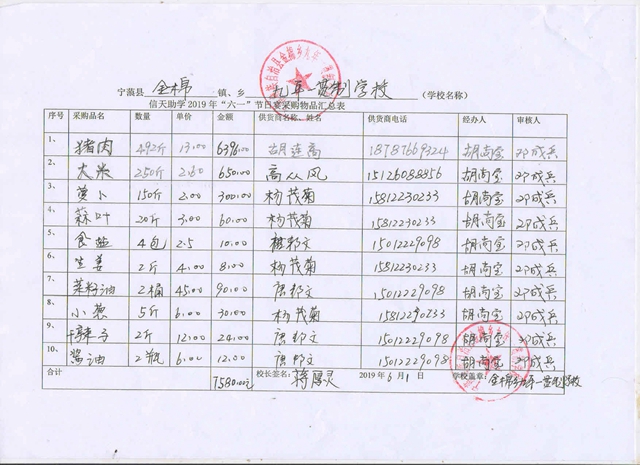 宁蒗县 金棉 镇、乡 九年一贯制学校 （学校名称）
信天助学2019年“六一”节日宴采购物品汇总表
序号 采购品名 数量 单价 金额 供货商名称、姓名 供货商电话 经办人 审核人
1、 猪肉 492斤 13.00 6396.00 胡莲高 18787669324 胡尚宝 邓成兵
2、 大米 250斤 2.60 650.00 高从风 15126088856 胡尚宝 邓成兵
3、 萝卜 150斤 2.00 300.00 杨茂菊 15812230233 胡尚宝 邓成兵
4、 蒜叶 20斤 3.00 60.00 杨茂菊 15812230233 胡尚宝 邓成兵
5、 食盐 4包 2.5 10.00 15012229098 胡尚宝 邓成兵
6、 生姜 2斤 4.00 8.00 杨茂菊 15812230233 胡尚宝 邓成兵
7、 菜籽油 2桶 45.00 90.00 15012229098 胡尚宝 邓成兵
8、 小葱 5斤 6.00 30.00 杨茂菊 15812290233 胡尚宝 邓成兵
9、 干辣子 2斤 12.00 24.00 15012229098 胡尚宝 邓成兵
10、 酱油 2瓶 6.00 12.00 15012229098 胡尚宝 邓成兵
合计 7580.00元 校长签名： 2019年6月1日 学校盖章：金棉乡九年一贯制学校